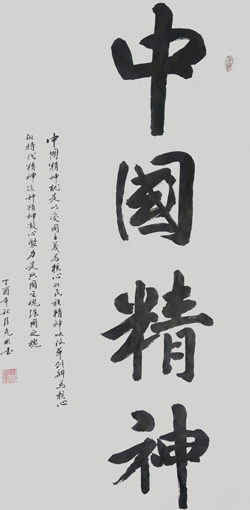 中國精神
中國精神就是以爱國主义為核心的民族精神以改革创新為核心
的時代精神这种精神凝心聚力是兴國之魂强國之魂
丁酉年秋月克明书